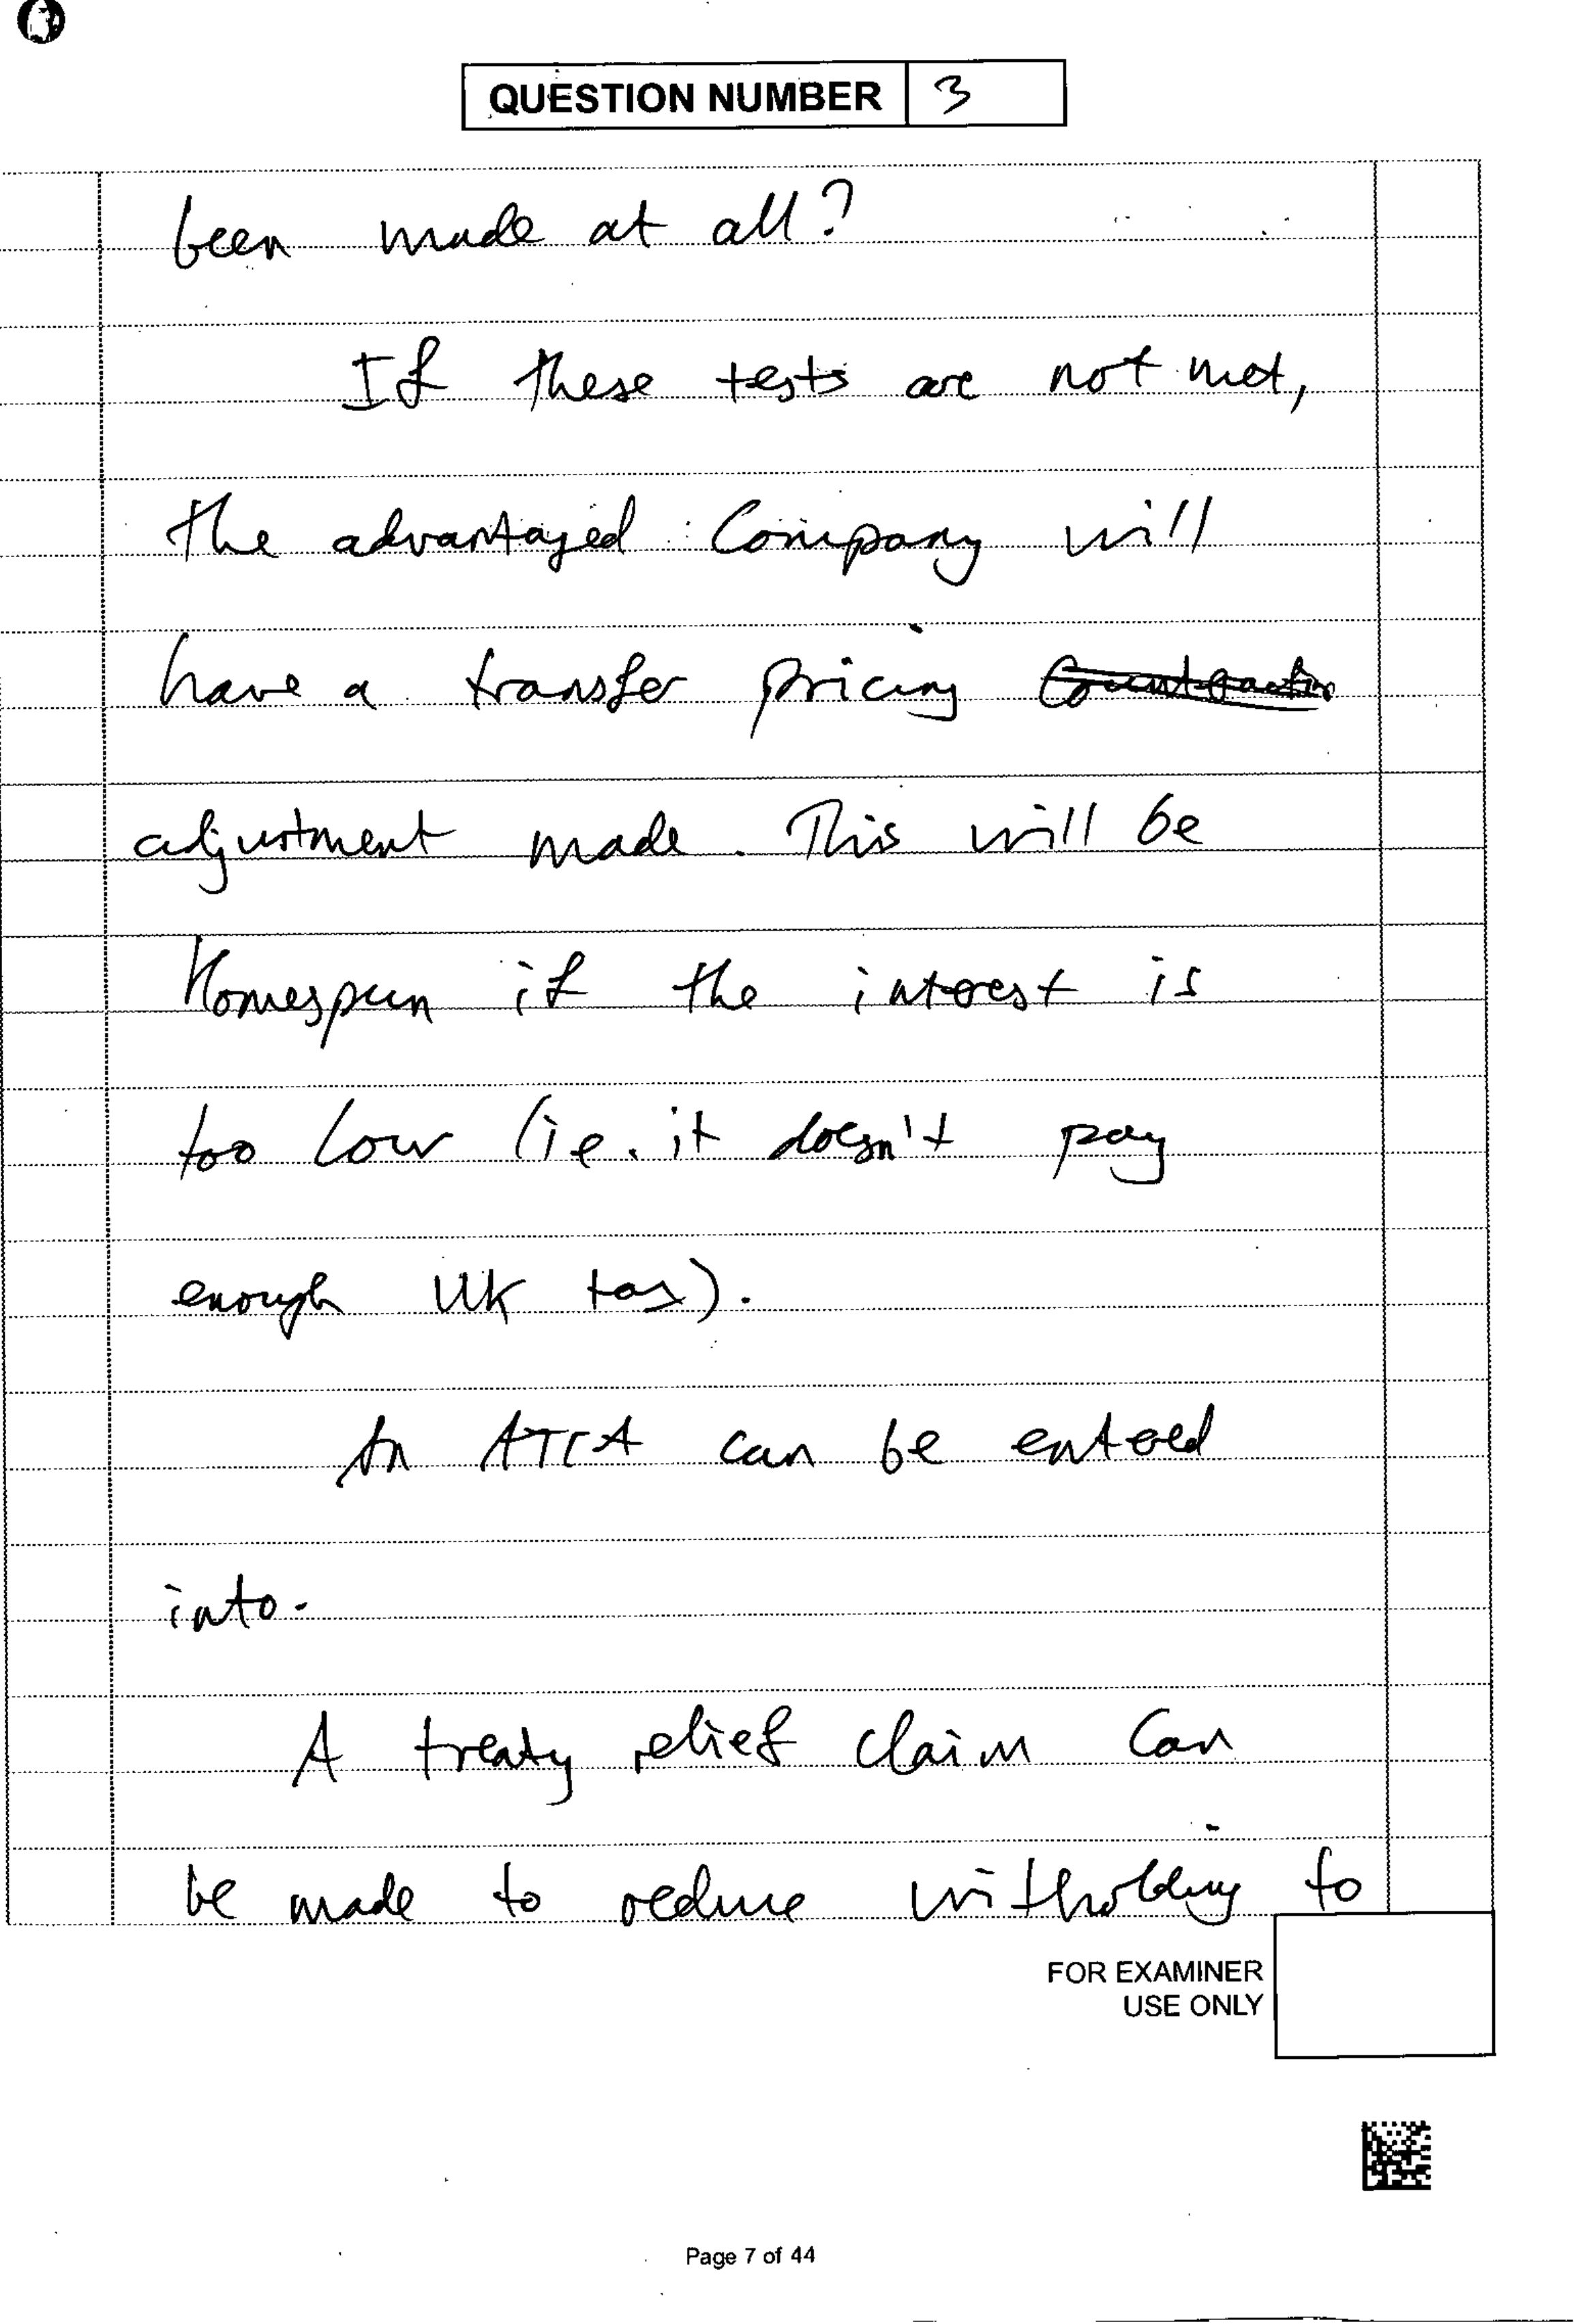 QUESTION NUMBER 3
been made at all?
If these tests are not met,
the advantaged Company will
have a transfer pricing
adjustment made. This will be
Homespun if the interest is
too low (ie. it doesn't pay
enough UK tax).
An ATCA can be entered
into.
A treaty relief claim can
be made to reduce witholding to
FOR EXAMINER
USE ONLY
Page 7 of 44